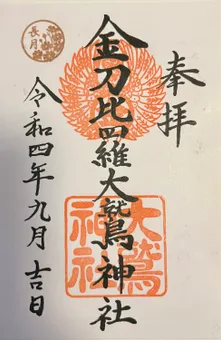 奉拝
金刀比羅大鷲神社
大鷲
神社
令和四年九月吉日
長月